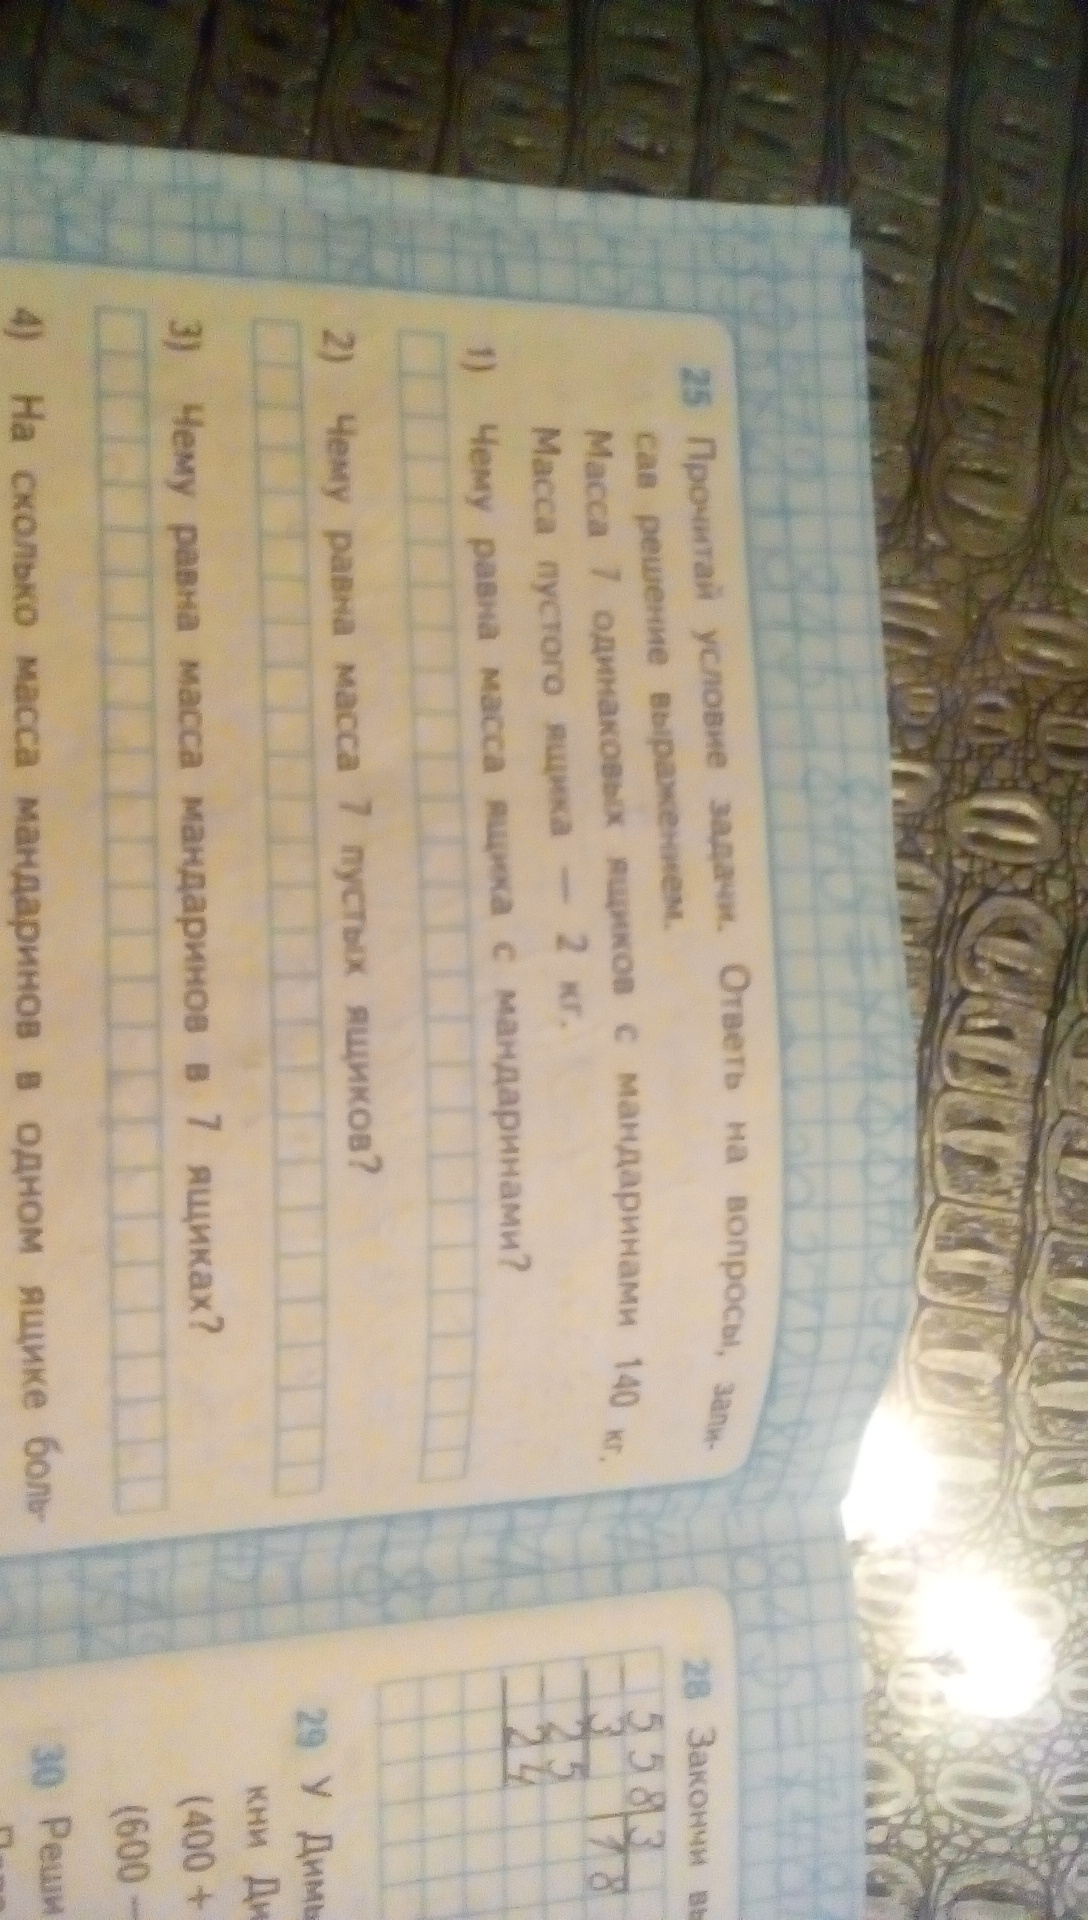 25 Прочитай условие задачи. Ответь на вопросы, запи-
сав решение выражением.
Масса 7 одинаковых ящиков с мандаринами 140 кг.
Масса пустого ящика — 2 кг.
1) Чему равна масса ящика с мандаринами?
2) Чему равна масса 7 пустых ящиков?
3) Чему равна масса мандаринов в 7 ящиках?
4) На сколько масса мандаринов в одном ящике боль-
28 Закончи вы
558 3
3 18
25
24
29 У Димы
кни Ди
(400 +
(600 —
30 Реши